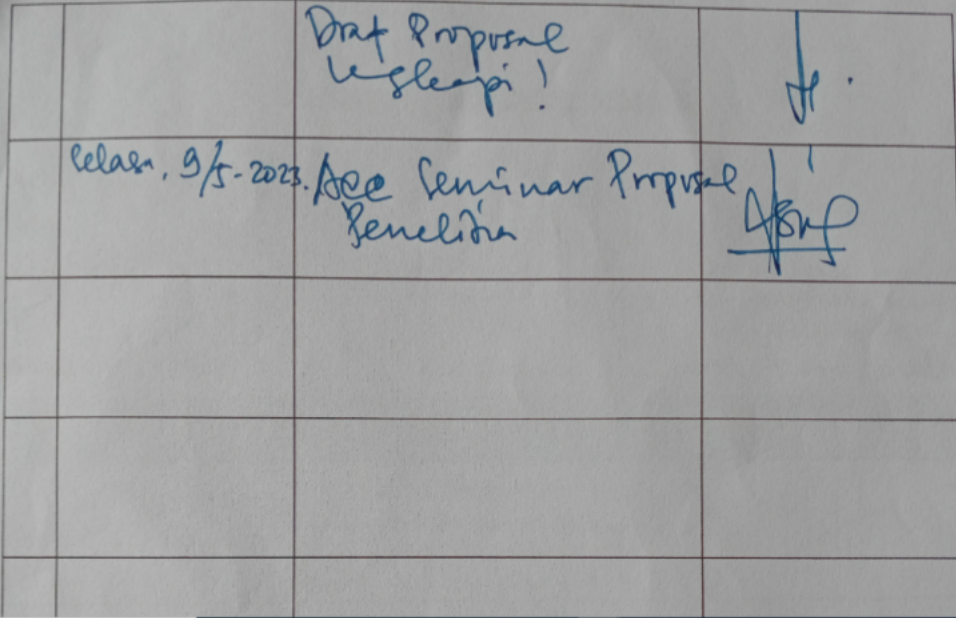 Draf Proposal
lengkapi !
Selasa, 9/5-2023. Acc Seminar Proposal
Penelitian